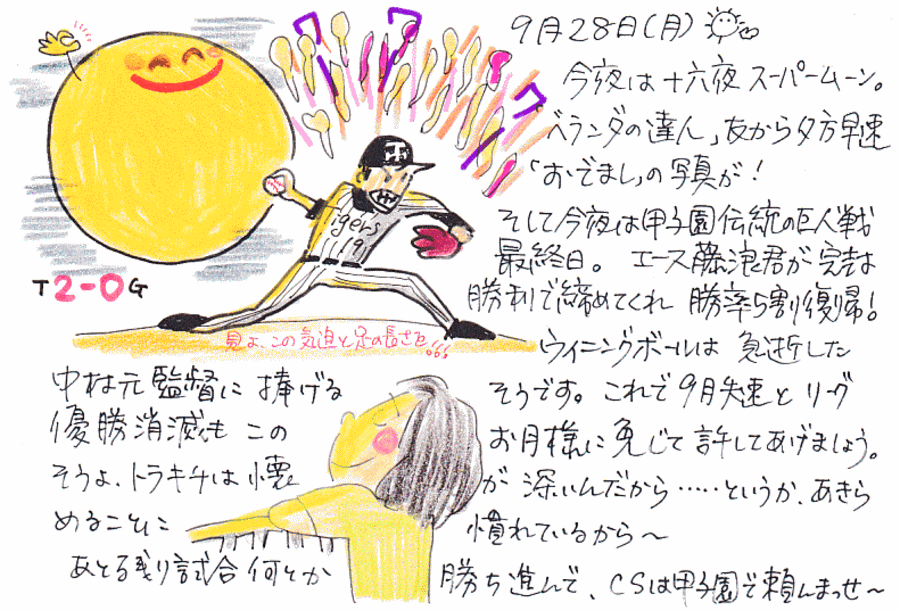 9月28日(月)
今夜は十六夜スーパームーン。
ベランダの達人」友から夕方早速
「おでまし」の写真が!
そして今夜は甲子園伝統の巨人戦
最終日。 エース藤浪君が完封
勝利で締めてくれ 勝率5割復帰!
T2-0G
igers
19
見よ、この気迫と足の長さを!!!
ウイニングボールは 急逝した
中村元監督に 捧げる そうです。これで9月失速とリーグ
優勝消滅も この お月様に免じて許してあげましょう。
そうよ、トラキチは懐 が深いんだから……というか、あきら
めることに 慣れているから〜
あと3残り試合 何とか 勝ち進んで、CSは甲子園で頼んまっせ〜